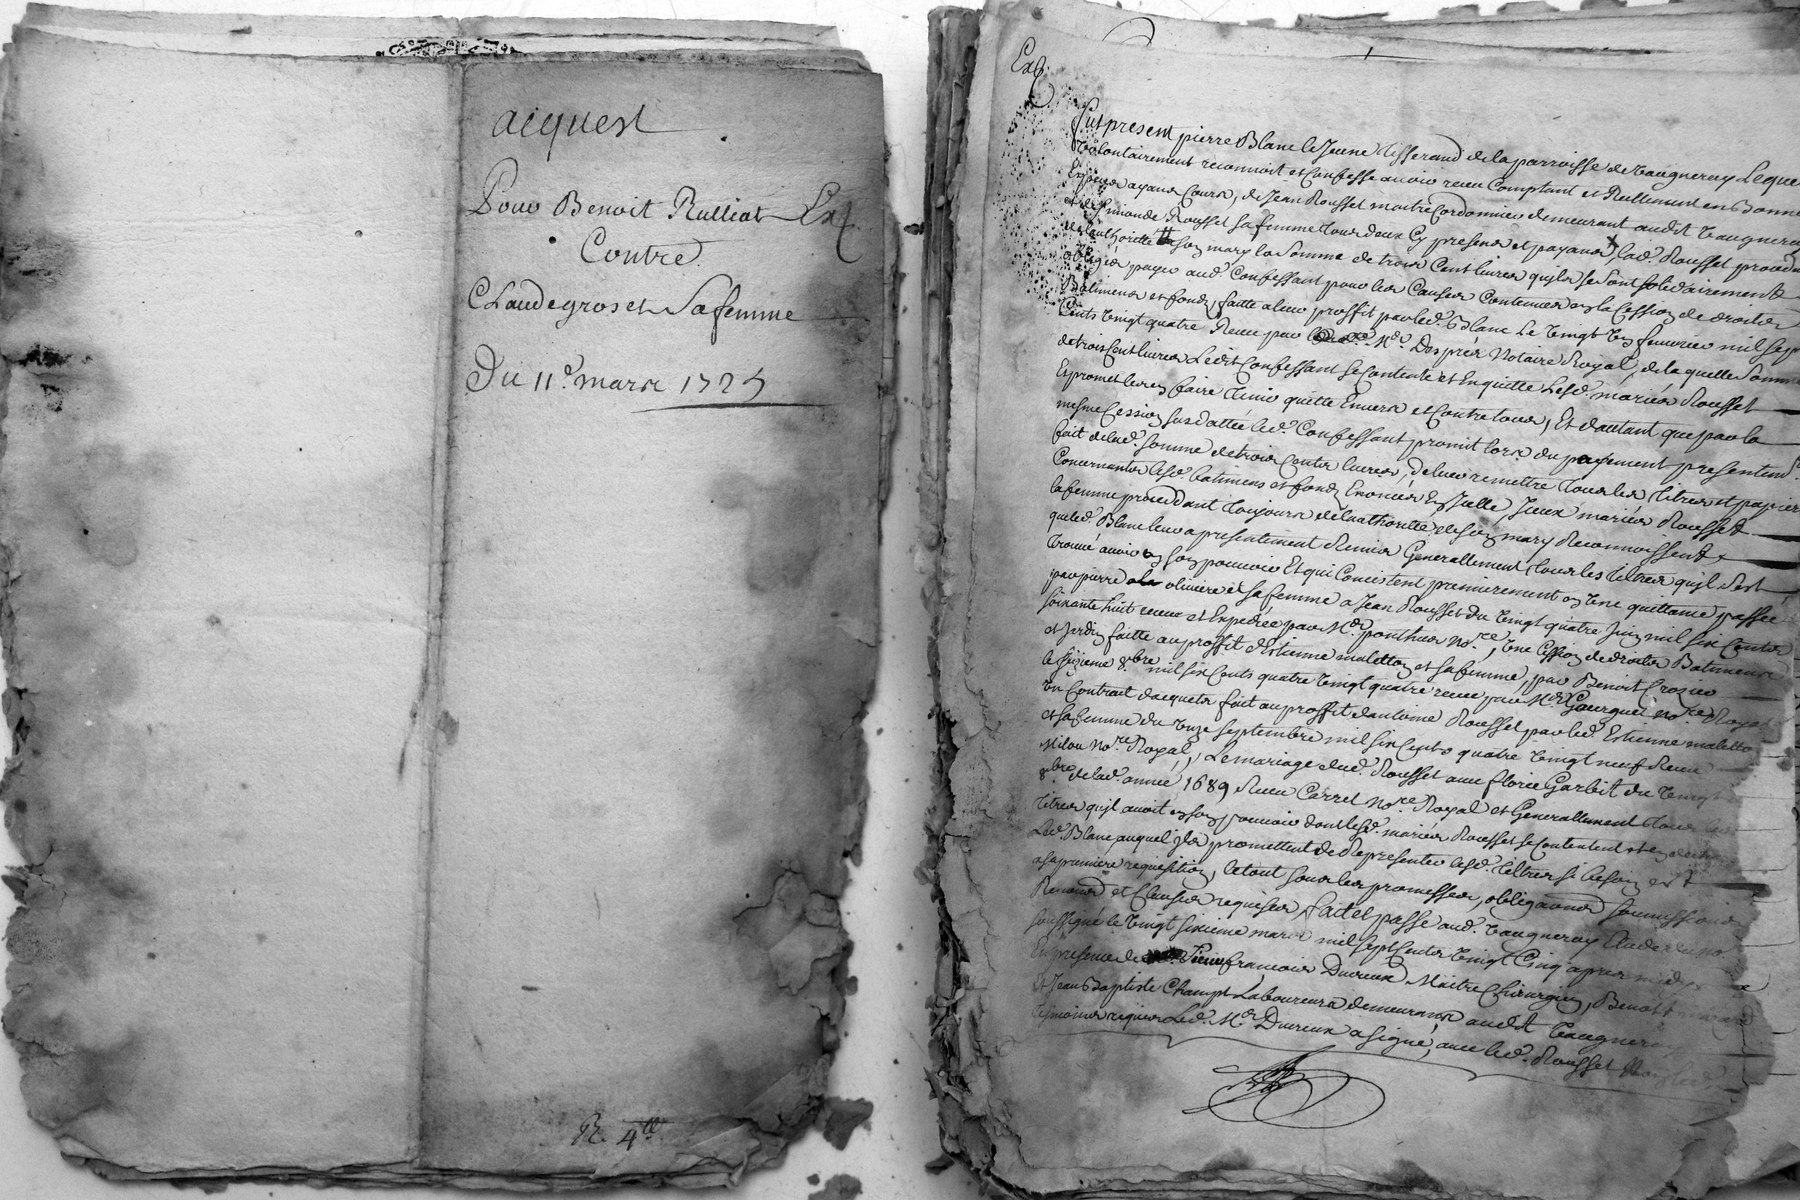 acquest
Pour Benoit Rulliat Exp.
Contre
Claude gros et Sa femme
Du 11e. mars 1725
R. 4tt
Exp.
Fut present pierre Blanc le Jeune tisserand de la parroisse de Vaugneray Lequel
Volontairement reconnoit et Confesse avoir receu Comptant et Reellement en Bonne
Especes ayans Cours, de Jean Rousset maitre Cordonnier demeurant audit Vaugneray
et de simonde Rousset sa femme tous deux Cy presens et payans, lad. Rousset proced
de lauthorité de son mary la Somme de trois Cent livres qu'ils se sont solidairement
obligés payer aud. Confessant pour les Causes Contenues en la Cession de droits
Batimens et fonds, faitte a leur proffit par led. Blanc Le Vingt feuvrier mil sept
Cents Vingt quatre Receu par Me. Desprès Notaire Royal, de laquelle Somme
de trois Cent livres Ledit Confessant se Contente et En quitte Lesd. mariés Rousset
Et promet les en faire tenir quitte Envers et Contre tous, Et d'autant que par la
mesme Cession susdattée led. Confessant promit lors du payement presentem.
fait de lad. somme de trois Cents livres, de leur remettre tous les titres et papiers
Concernants lesd. batimens et fonds Enoncés En Icelle, Iceux mariés Rousset
la femme proceddant toujours de lauthorité de son mary Reconnoissent
que led. Blanc leur a presentement Remis Generallement tous les titres qu'il s'est
trouvé avoir en son pouvoir Et qui Consistent premierement en Une quittance passée
par pierre oliviere et sa femme a Jean Rousset du Vingt quatre Juin mil six Cents
soixante huit receue et Expediée par Me. ponthus no.re, Une Cession de droits Batimens
et Jardin faitte au proffit d'Estienne maletton et sa femme, par Benoit Crozier
le seizieme 8bre mil six Cents quatre Vingt quatre receue par Me. Gourguet no.re Royal
Un Contrait d'acquets fait au proffit d'antoine Rousset par led. Estienne maletto
et sa femme du Onze septembre mil six Cents quatre Vingt neuf Receu
Milou no.re Royal, Le mariage dud. Rousset avec florie Garbit du Vingt
8bre de lad. année 1689 Receu Carret no.re Royal et Generallement tous les
titres qu'il avoit en son pouvoir dont lesd. mariés Rousset se Contentent et en
Led. Blanc auquel ils promettent de Representer lesd. tittres si besoin est
a sa premiere requisition, le tout sous les promesses, obligations soumissions
Renonc. et Clauses requises, fait et passé aud. Vaugneray
soussigné le Vingt sixieme mars mil sept Cents Vingt Cinq apres midy
En presence de Sieur françois Dureux Maitre Chirurgien, Benoit
Et Jean Baptiste Champt Laboureurs demeurans audit Vaugneray
tesmoins requis Led. Mr Dureux a signé, avec led. Rousset